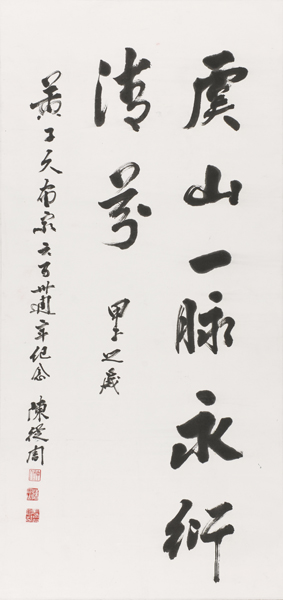 虞山一脉永衍
清芬
甲子之歲
黃子久六百卅週年紀念
陳從周